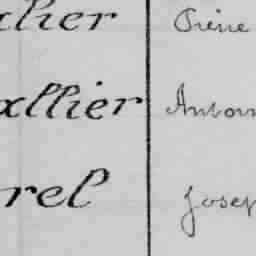 llier Irène
allier Anton
rel Josep